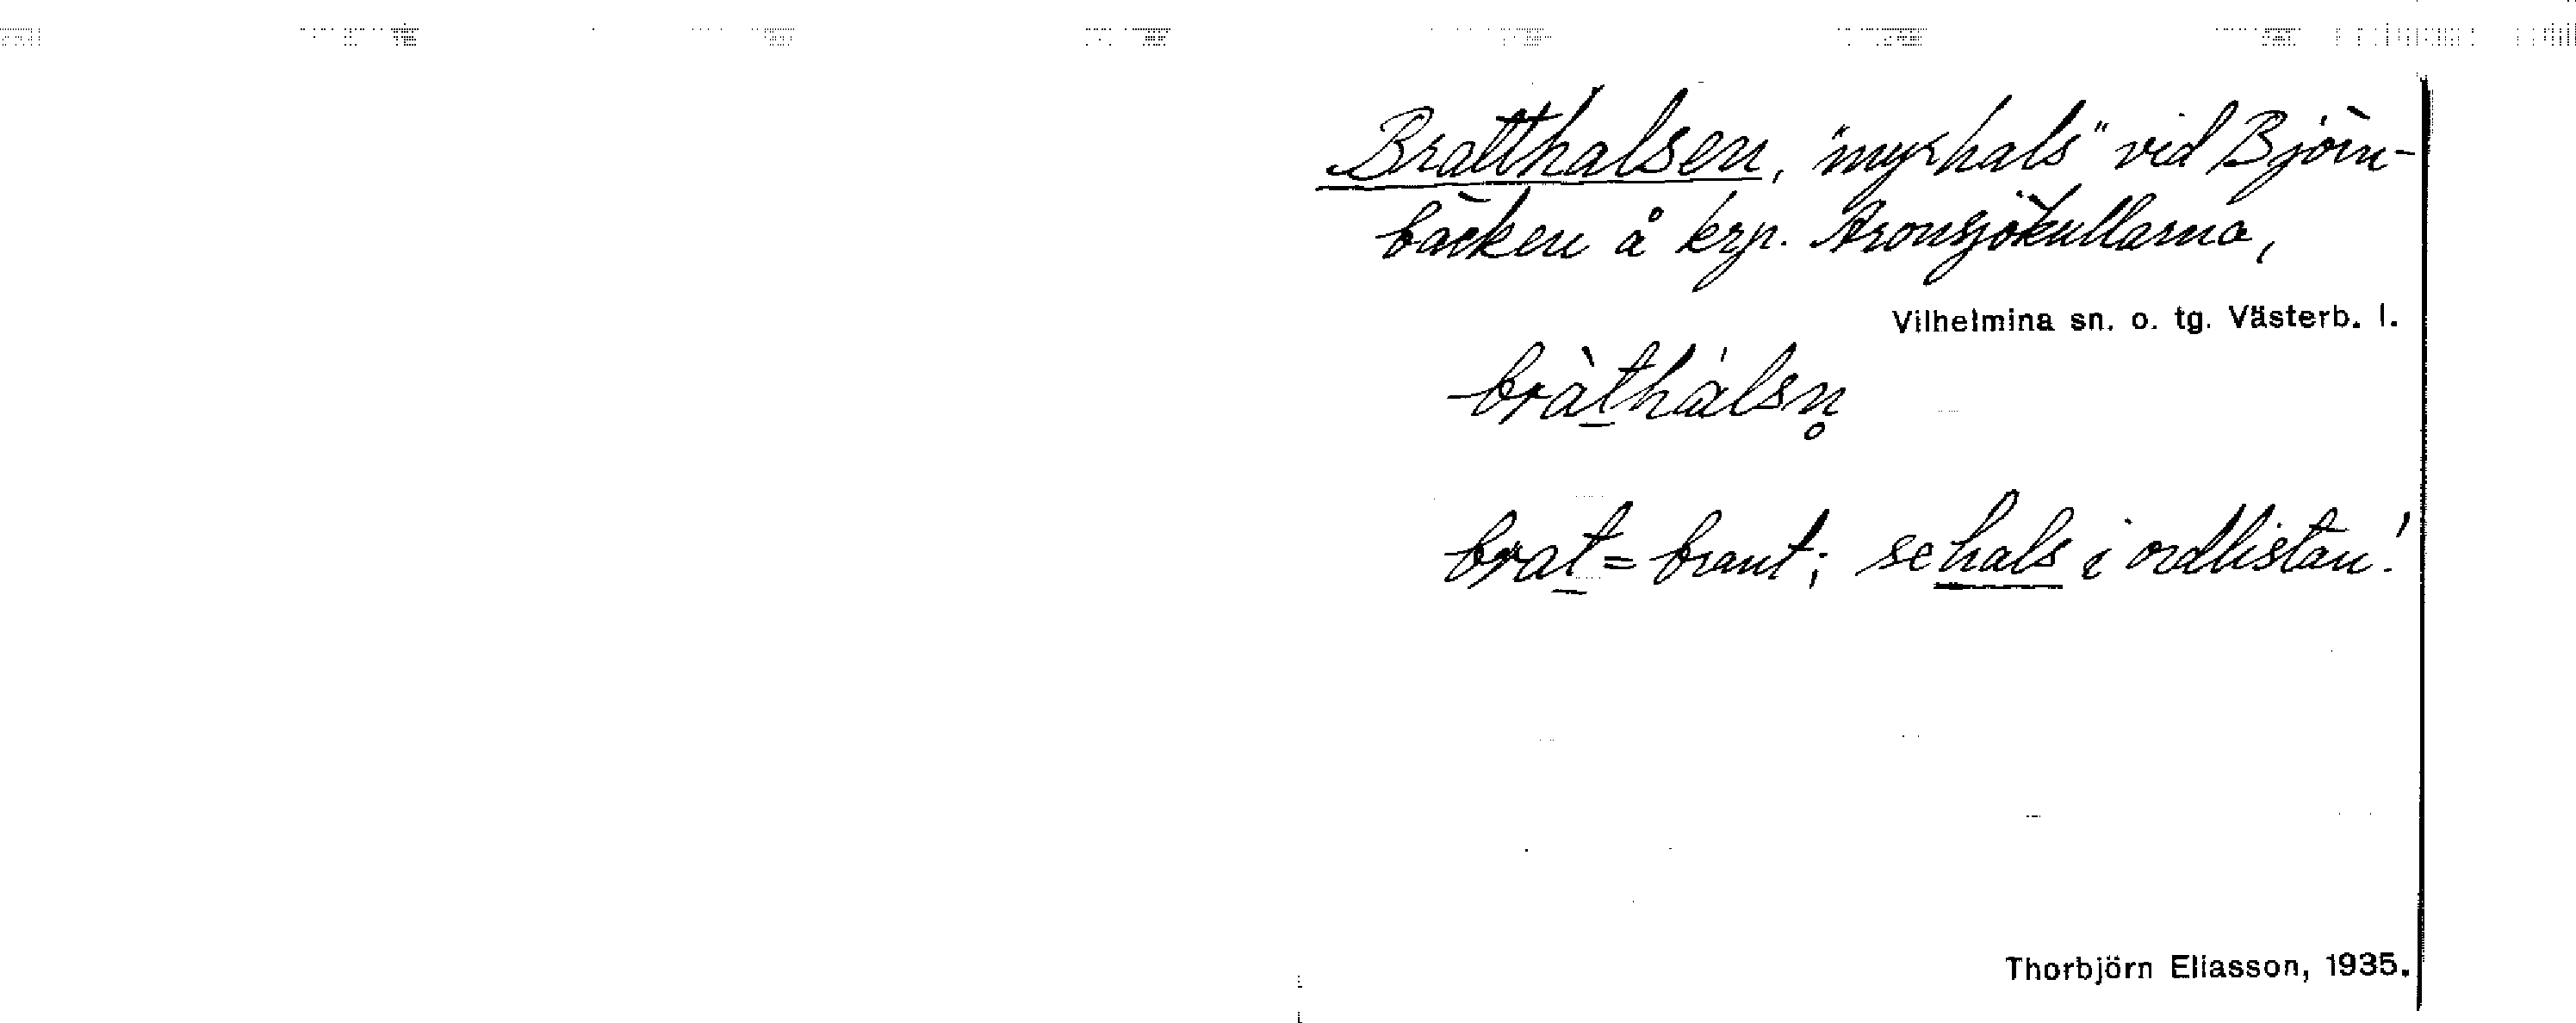 Bratthalsen, "myrhals" vid Björn-
bäcken å krp. Aronsjökullarna,
Vilhelmina sn. o. tg. Västerb. l.
bràt̲hálsn̥
brat̲ = brant; se hals i ordlistan!
Thorbjörn Eliasson, 1935.